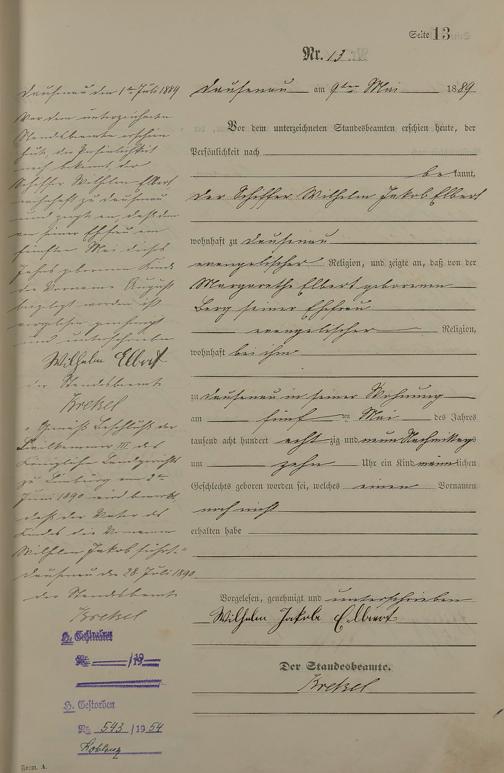 Seite 13
Nr. 13
Dausenau am 9ten Mai 1889
Vor dem unterzeichneten Standesbeamten erschien heute, der
Persönlichkeit nach
be kannt,
der Schiffer Wilhelm Jakob Elbert
wohnhaft zu Dausenau
evangelischer Religion, und zeigte an, daß von der
Margarethe Elbert geborenen
Berg seiner Ehefrau
evangelischer Religion,
wohnhaft bei ihm
zu Dausenau in seiner Wohnung
am fünf ten Mai des Jahres
tausend acht hundert acht zig und neun Nachmittags
um zehn Uhr ein Kind männlichen
Geschlechts geboren worden sei, welches einen Vornamen
noch nicht
erhalten habe
Vorgelesen, genehmigt und unterschrieben
Wilhelm Jakob Elbert
Der Standesbeamte.
Krekel
Dausenau den 1ten Juli 1889
Vor dem unterzeichneten
Standesbeamten erschien
heute, der Persönlichkeit
nach bekannt, der
Schiffer Wilhelm Elbert
wohnhaft zu Dausenau
und zeigte an, daß dem
von seiner Ehefrau am
fünften Mai dieses
Jahres geborenen Kinde
der Vorname August
beigelegt worden ist
vorgelesen genehmigt
und unterschrieben
Wilhelm Elbert
der Standesbeamte
Krekel
Gemäß Beschluß der
Civilkammer III des
Königlichen Landgerichts
zu Limburg vom
Juni 1890 wird bemerkt
daß der Vater des
Kindes die Vornamen
Wilhelm Jakob führt.
Dausenau den 28. Juli 1890
der Standesbeamte
Krekel
H. Geheiratet
Nr. /19
H. Gestorben
Nr. 543 /1954
Koblenz
Form. A.